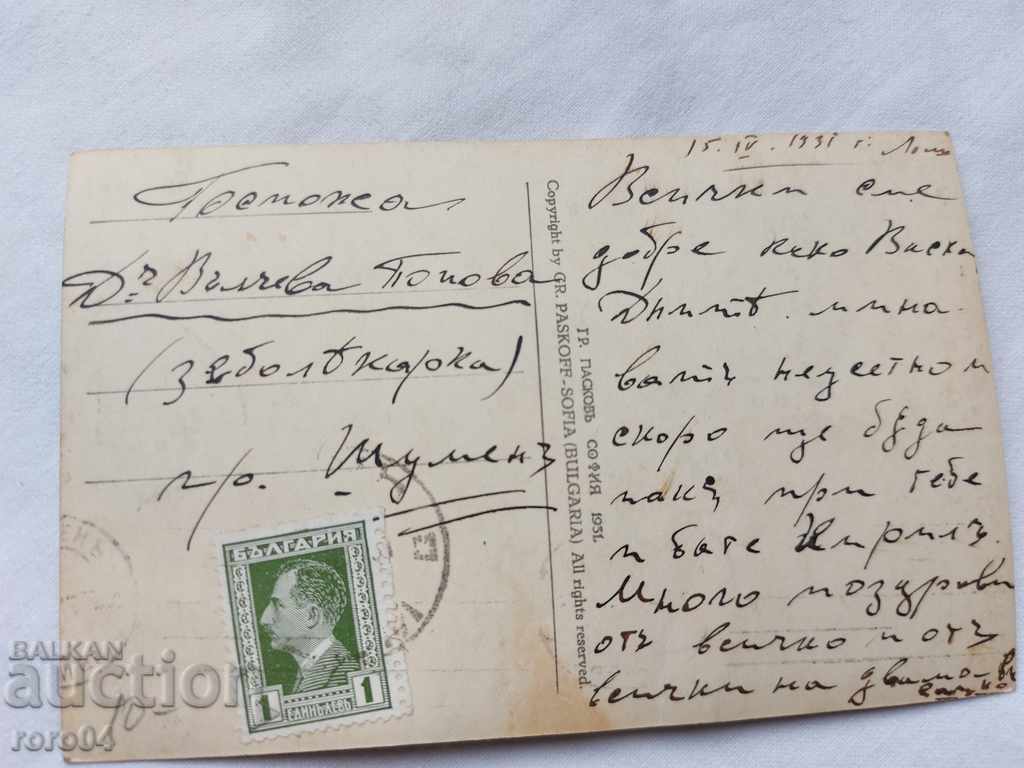 15. IV. 1931 г.
Госпожа
Д-ръ Вълчева Попова
(Зѫболѣкарка)
гр. Шуменъ
БЪЛГАРИЯ
1 ЕДИНЪ ЛЕВЪ 1
Copyright by GR. PASKOFF-SOFIA (BULGARIA) All rights reserved.
ГР. ПАСКОВЪ СОФИЯ 1931.
Всички сме
добре како Васка
Днитѣ мина-
ватъ неусетно и
скоро ще бѫда
пакъ при тебе
и бате Кирилъ.
Много поздрави
отъ всичко и отъ
всички на двама
10
BALKAN
auction
roro04